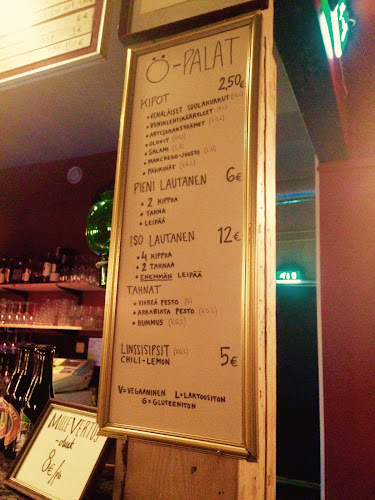 Ö-PALAT
KIPOT 2,50€
• VENÄLÄISET SUOLAKURKUT (V.G.)
• VIININLEHTIKÄÄRYLEET
• ARTISOKANSYDÄMET (V.G.)
• OLIIVIT (V.G.)
• SALAMI (L.G)
• MANCHEGO-JUUSTO (L.G)
• PÄHKINÄT (V.G.)
PIENI LAUTANEN 6€
• 2 KIPPOA
• TAHNA
• LEIPÄÄ
ISO LAUTANEN 12€
• 4 KIPPOA
• 2 TAHNAA
• ENEMMÄN LEIPÄÄ
TAHNAT
• VIHREÄ PESTO (G)
• ARRABIATA PESTO (V.G.)
• HUMMUS (V.G.)
LINSSISIPSIT (V.G.) 5€
CHILI-LEMON
V=VEGAANINEN L=LAKTOOSITON
G=GLUTEENITON
MILLE VERTUS
8€